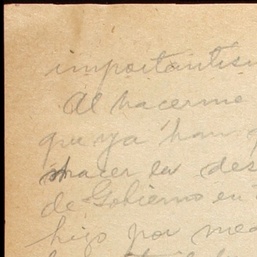 importantisi
Al hacerme
que ya han
hacer la des
de Gobierno en
hizo por med